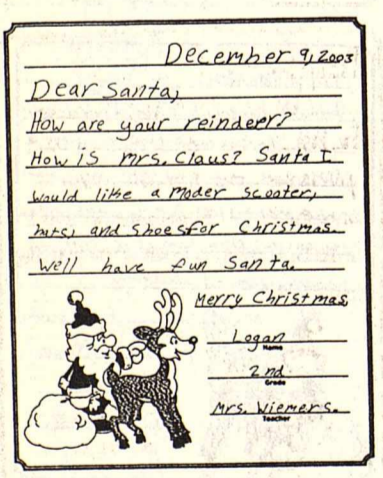 December 9, 2003
Dear Santa,
How are your reindeerr?
How is mrs. Claus? Santa I
would like a moder scooter,
huts, and shoes for Christmas.
Well have fun Santa.
Merry Christmas,
Logan
Name
2nd
Grade
Mrs. Wiemers.
Teacher